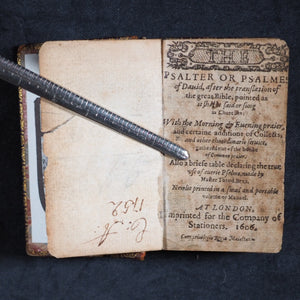 THE
PSALTER OR PSALMES
of Dauid, after the translation of
the great Bible, pointed as
it shall be said or song
in Churches.
With the Morning & Euening praier,
and certaine additions of Collects,
and other
gathered out of the booke
of Common praier.
Also a briefe table declaring the true
vse of euerie Psalme, made by
Newlie printed in a small and portable
volume or Manuel.
AT LONDON,
Imprinted for the Company of
Stationers. 1606.
Cum priuilegio Regiæ Maiestatis
1752